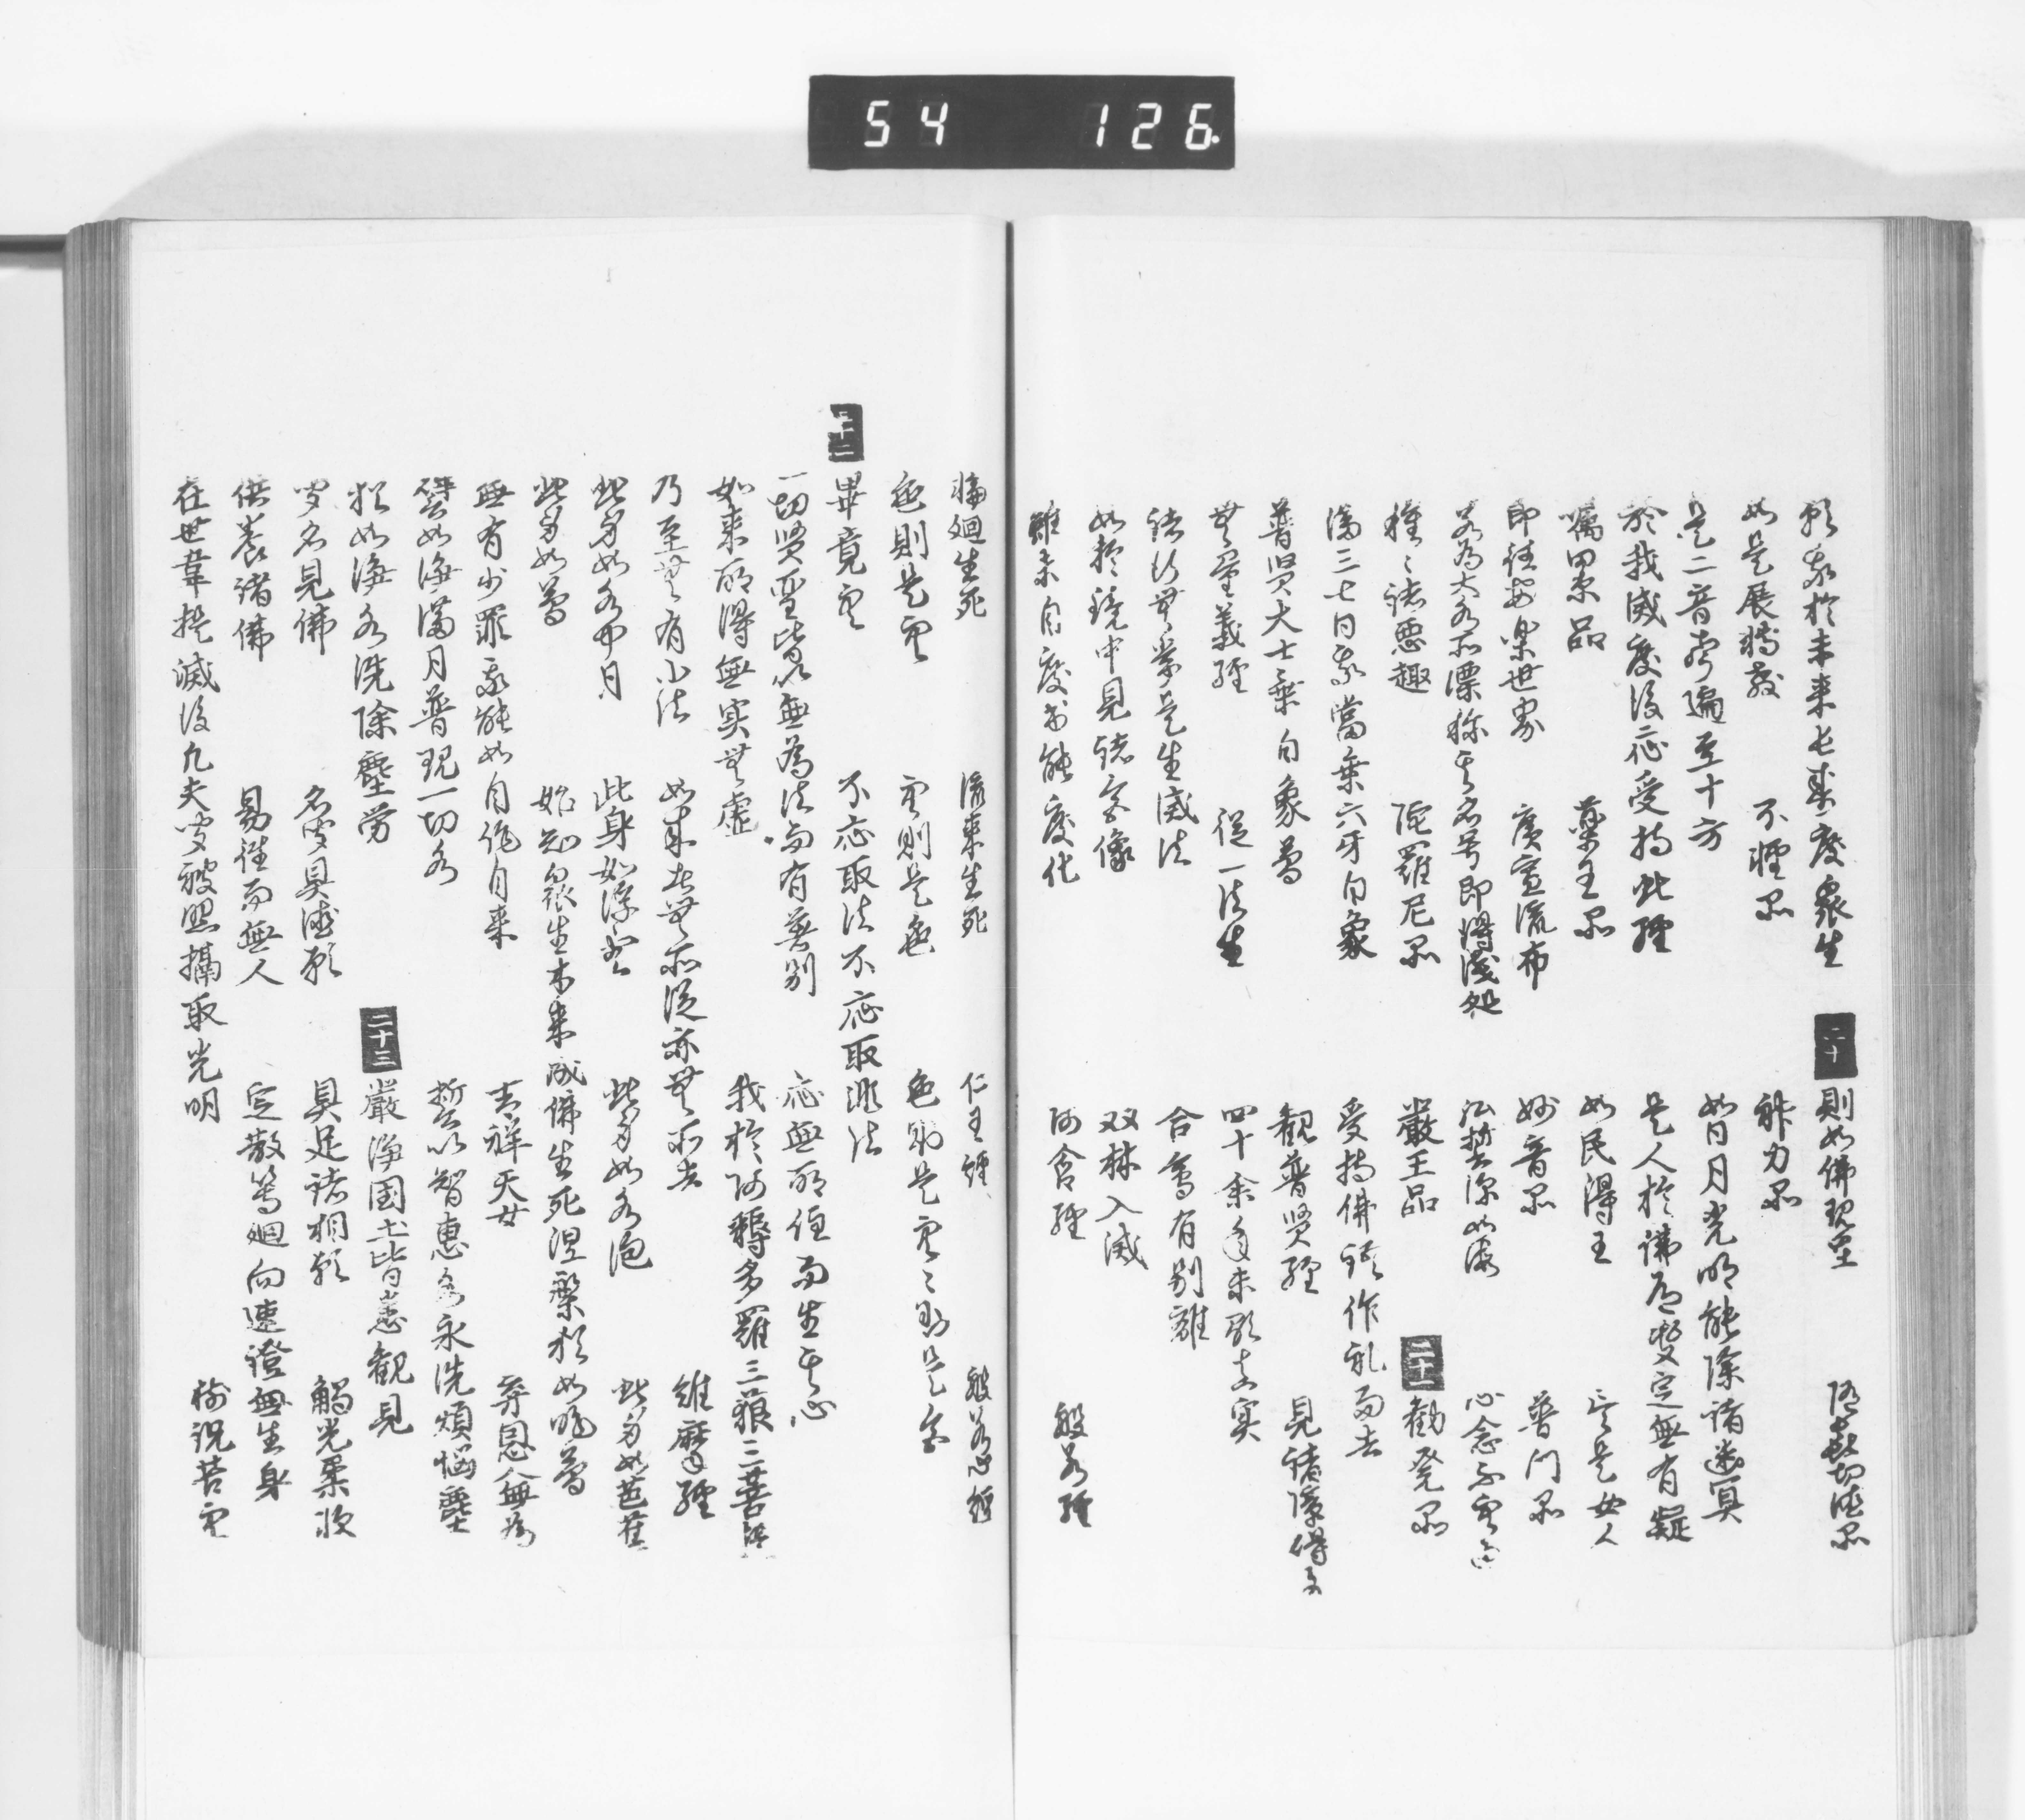 54 126
願我於未来長寿度衆生 二十 則如佛現在 随喜功徳品
如是展轉教 不軽品 神力品
是二音声遍至十方 如日月光明能除諸幽冥
於我滅度後應受持此経 是人於佛道決定無有疑
嘱累品 薬王品 如民得王 若是女人
即往安楽世界 廣宣流布 妙音品 普門品
若為大水所漂称其名号即得浅処 弘誓深如海 心念不空過
種々諸悪趣 陀羅尼品 嚴王品 二十一 勧発品
満三七日我當乗六牙白象 受持佛語作礼而去
普賢大士乗白象 観普賢経 見諸障
無量義経 従一法生 四十余年未顕真実
諸行無常是生滅法 合會有別離
如於鏡中見諸色像 双林入滅
雖未自度而能度化 阿含経 般若経
輪廻生死 流来生死 仁王経 般若心経
色則是空 空則是色 色則是空々則是色
二十二 畢竟空 不應取法不應取非法
一切賢聖皆以無為法而有差別 應無所住而生其心
如来所得無実無虚 我於阿耨多羅三藐三菩提
乃至無有小法 如来者無所従亦無所去 維摩経
此身如水中月 此身如浮雲 此身如水泡 此身如芭蕉
此身如夢 始知衆生本来成佛生死涅槃猶如昨夢
無有少罪我能如 自作自来 吉祥天女 棄恩入無為
譬如海 満月普現一切水 誓以智惠水永洗煩悩塵
猶如海水洗除塵労 二十三 嚴浄国土皆悉観見
聞名見佛 名聞具徳願 具足諸相願 觸光柔軟
供養諸佛 易往而無人 定散等廻向速證無生身
在世韋提滅後凡夫聞被照攝取光明 捨説苦空